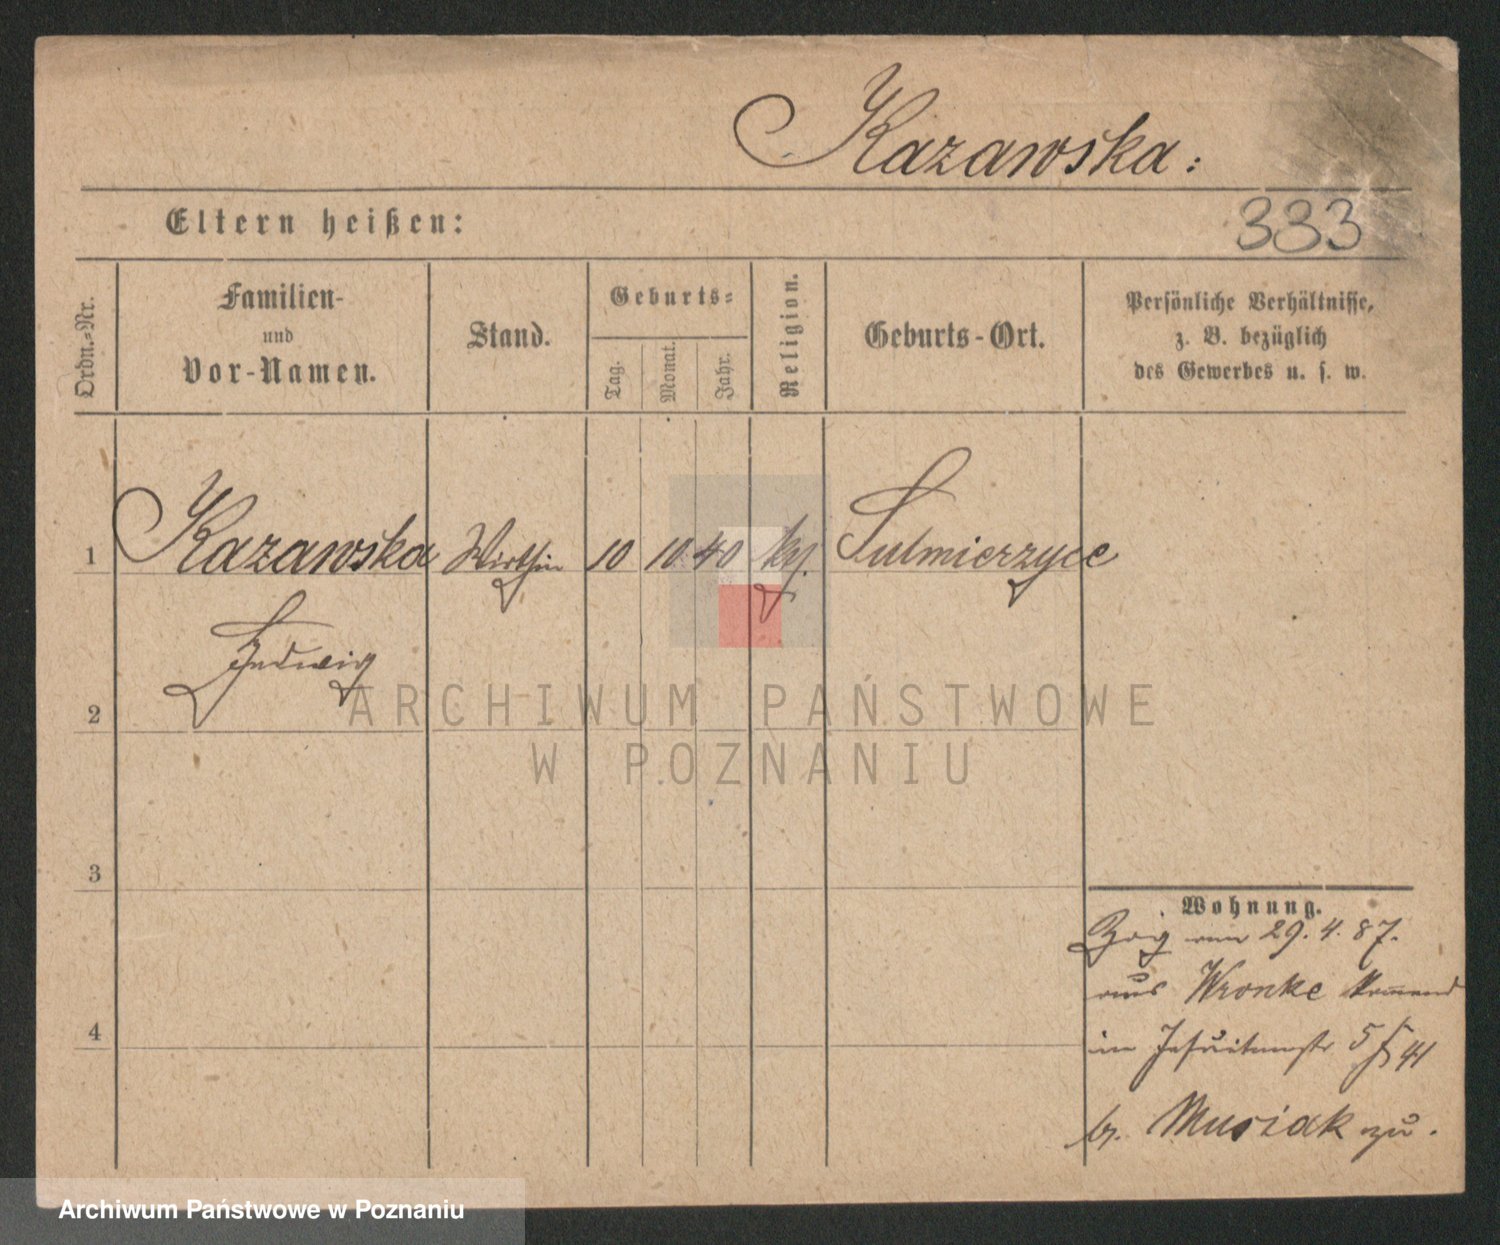 Kazawska:
Eltern heißen:
333
Ordn.-Nr.
Familien-
und
Vor-Namen.
Stand.
Geburts-
Tag.
Monat.
Jahr.
Religion.
Geburts-Ort.
Persönliche Verhältnisse,
z. B. bezüglich
des Gewerbes u. s. w.
1 Kazawska Wirthin 10 10 40 Sulmierzyce
Hedwig
2
3
4
Wohnung.
Zog am 29. 4. 87.
aus Wronke kommend
in Jesuitenstr 5
b. Musiak zu.
ARCHIWUM PAŃSTWOWE
W POZNANIU
Archiwum Państwowe w Poznaniu